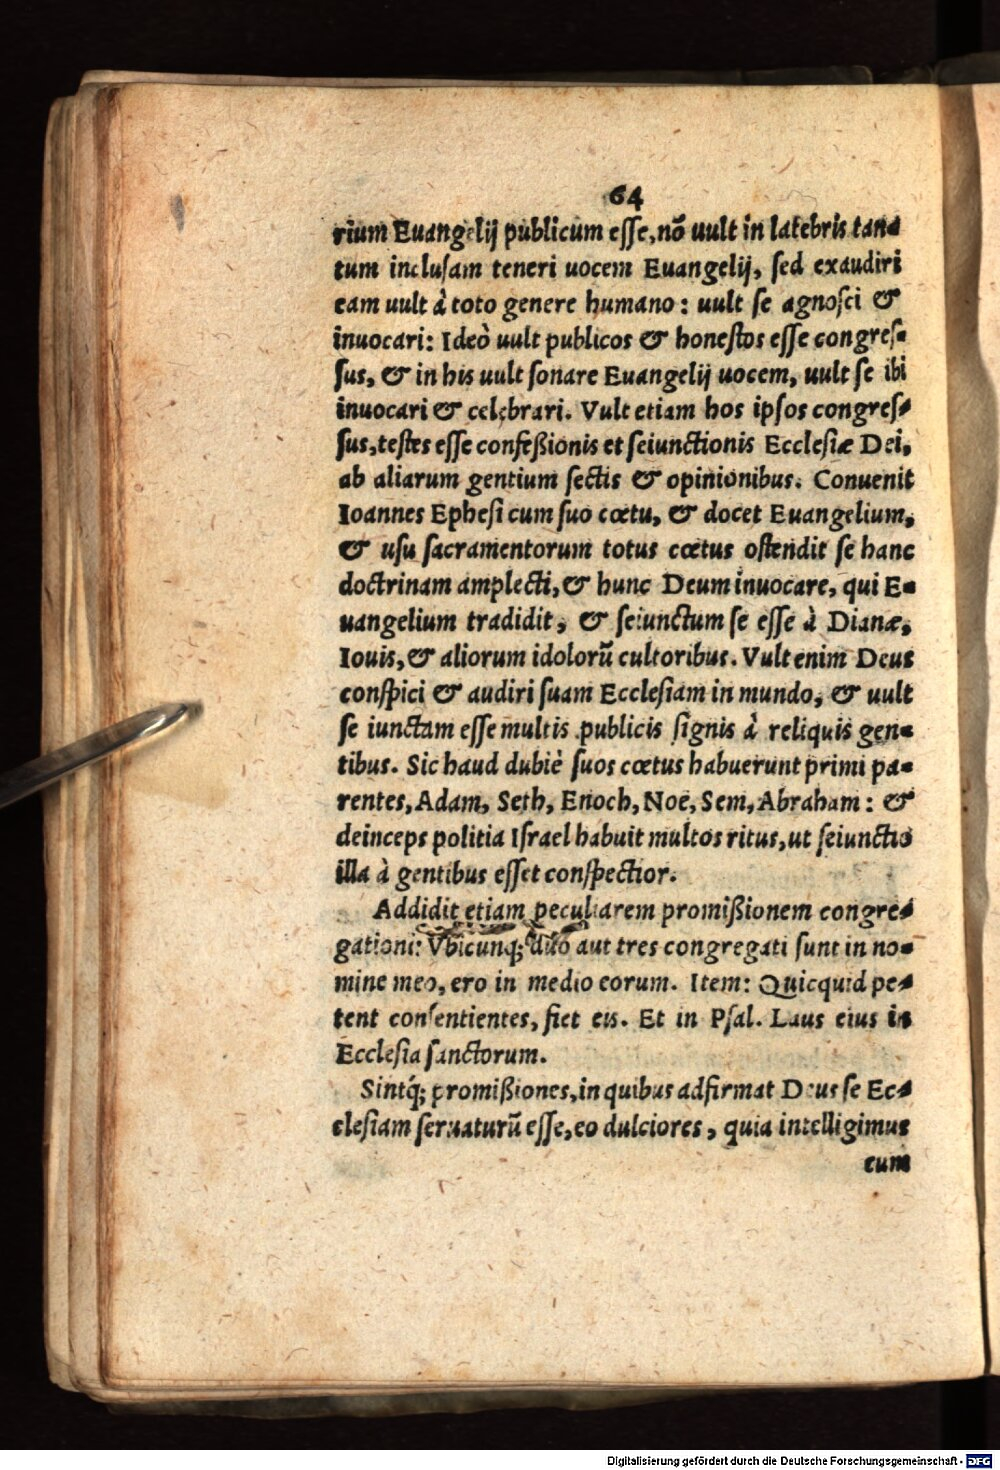 64
rium Euangelij publicum eſſe, nõ uult in latebris tan⸗
tum incluſam teneri uocem Euangelij, ſed exaudiri
eam uult à toto genere humano: uult ſe agnoſci &
inuocari: Ideò uult publicos & honeſtos eſſe congreſ⸗
ſus, & in his uult ſonare Euangelij uocem, uult ſe ibi
inuocari & celebrari. Vult etiam hos ipſos congreſ⸗
ſus, teſtes eſſe confeßionis et ſeiunctionis Eccleſiæ Dei,
ab aliarum gentium ſectis & opinionibus. Conuenit
Ioannes Epheſi cum ſuo cœtu, & docet Euangelium,
& uſu ſacramentorum totus cœtus oſtendit ſe hanc
doctrinam amplecti, & hunc Deum inuocare, qui E⸗
uangelium tradidit, & ſeiunctum ſe eſſe à Dianæ,
Iouis, & aliorum idolorũ cultoribus. Vult enim Deus
conſpici & audiri ſuam Eccleſiam in mundo, & uult
ſe iunctam eſſe multis publicis ſignis à reliquis gen⸗
tibus. Sic haud dubiè ſuos cœtus habuerunt primi pa⸗
rentes, Adam, Seth, Enoch, Noë, Sem, Abraham: &
deinceps politia Iſrael habuit multos ritus, ut ſeiunctio
illa à gentibus eſſet conſpectior.
Addidit etiam peculiarem promißionem congre⸗
gationi: Vbicunq; duo aut tres congregati ſunt in no⸗
mine meo, ero in medio eorum. Item: Quicquid pe⸗
tent conſentientes, fiet eis. Et in Pſal. Laus eius in
Eccleſia ſanctorum.
Sintq́; promißiones, in quibus adfirmat Deus ſe Ec⸗
cleſiam ſeruaturũ eſſe, eo dulciores, quia intelligimus
cum
Digitalisierung gefördert durch die Deutsche Forschungsgemeinschaft - DFG